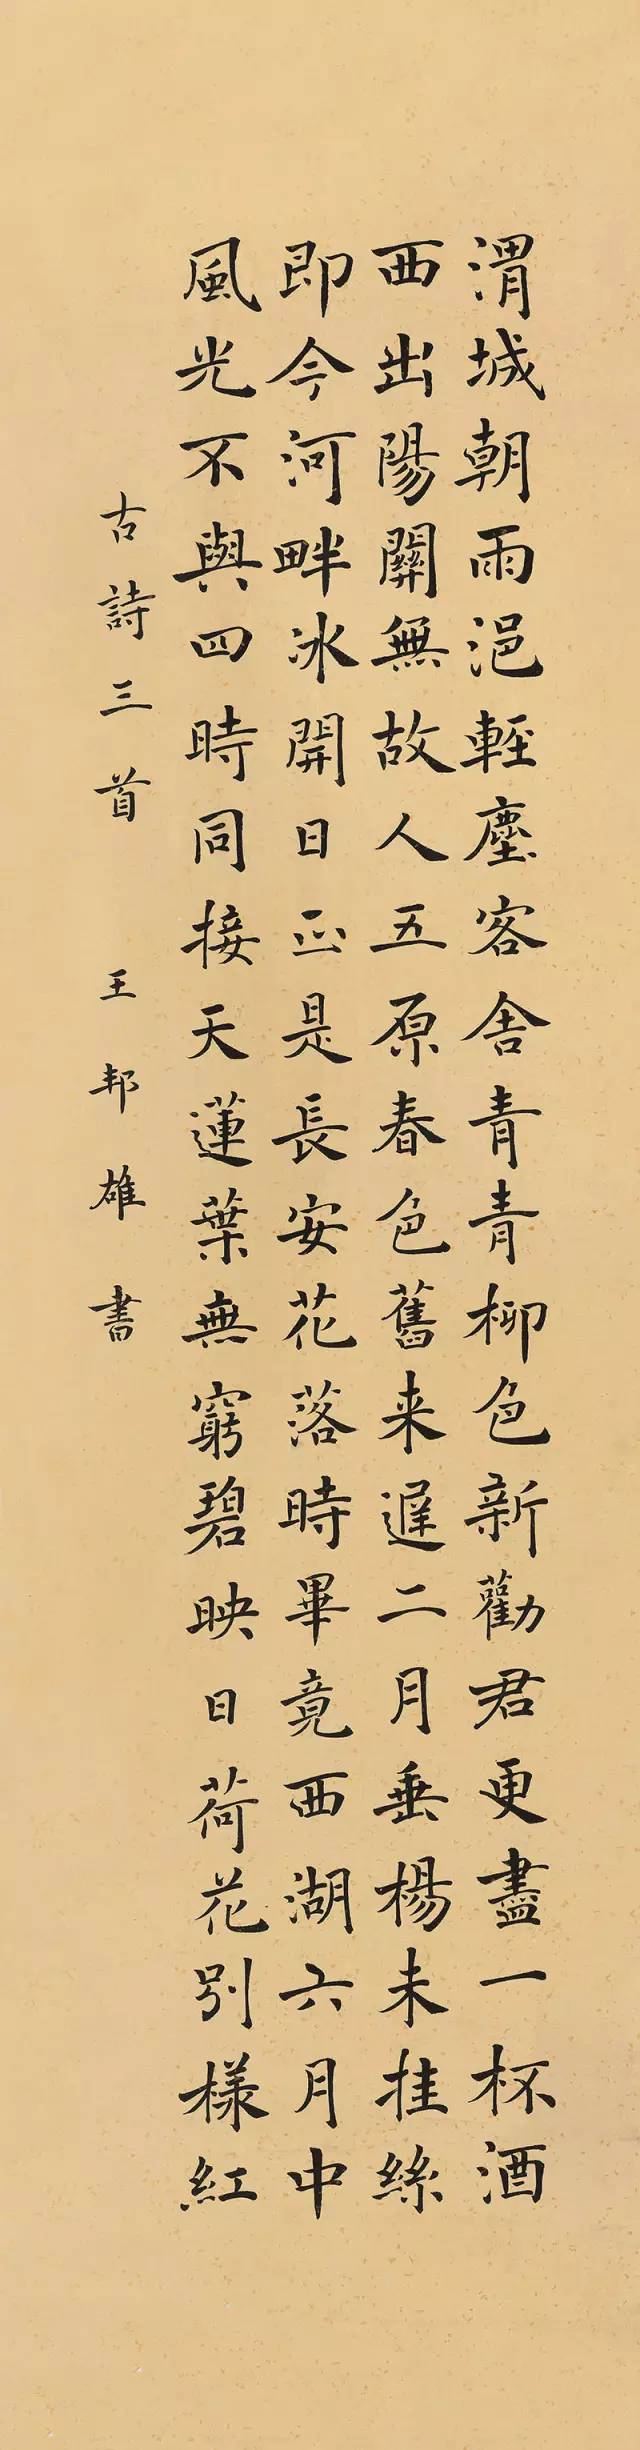 渭城朝雨浥輕塵客舍青青柳色新勸君更盡一杯酒
西出陽關無故人五原春色舊来遲二月垂楊未挂絲
即今河畔冰開日正是長安花落時畢竟西湖六月中
風光不與四時同接天蓮葉無窮碧映日荷花别樣紅
古詩三首 王邦雄書